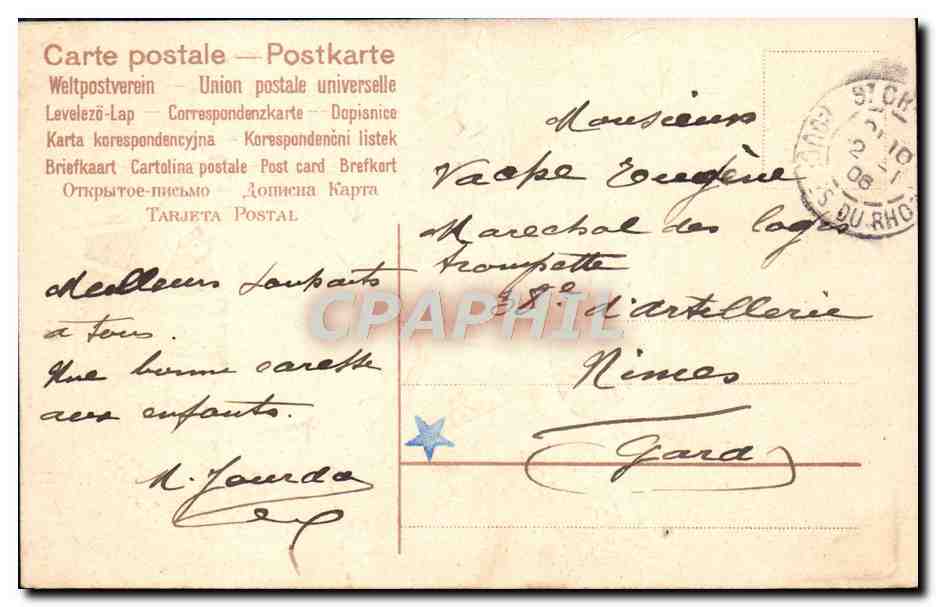 Carte postale — Postkarte
Weltpostverein — Union postale universelle
Levelező-Lap — Correspondenzkarte — Dopisnice
Karta korespondencyjna — Korespondenční listek
Briefkaart Cartolina postale Post card Brefkort
Открытое-письмо — Дописна Карта
TARJETA POSTAL
Monsieur
Vache Eugène
Marechal des logis
trompette
38e d'artillerie
Nimes
Gard
Meilleurs souhaits
a tous.
Une bonne caresse
aux enfants.
M. Jourda
CPAPHIL
ST CH
10
2
06
DU RHO